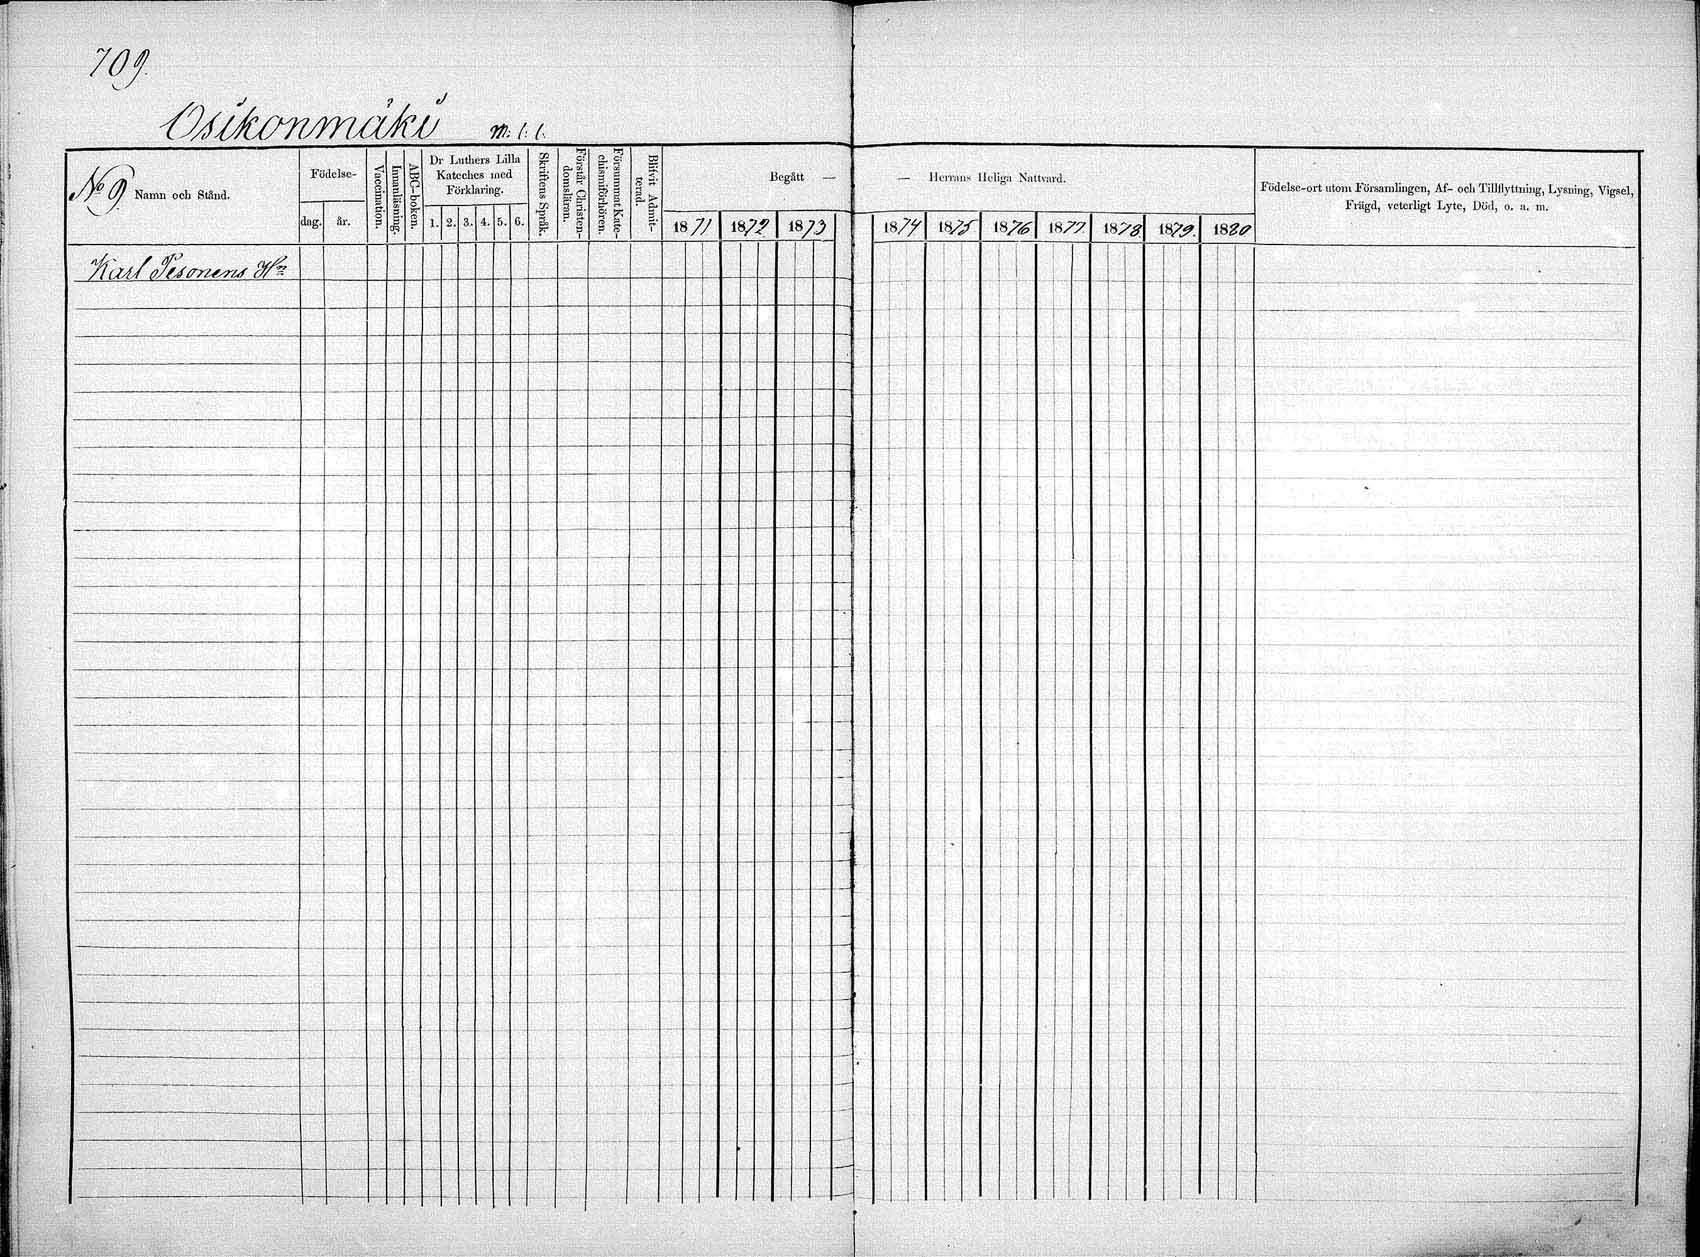 709.
Osikonmäki m. l. l.
No 9. Namn och Stånd.
Födelse-
dag. år.
Vaccination.
Innanläsning.
ABC-boken.
Dr Luthers Lilla
Kateches med
Förklaring.
1. 2. 3. 4. 5. 6.
Skriftens Språk.
Förstår Christen-
domsläran.
Försummat Kate-
chismiförhören.
Blifvit Admit-
terad.
Begått —
1871 1872 1873
— Herrans Heliga Nattvard.
1874 1875 1876 1877 1878 1879 1880
Födelse-ort utom Församlingen, Af- och Tillflyttning, Lysning, Vigsel,
Frägd, veterligt Lyte, Död, o. a. m.
Karl Pesonens Hn